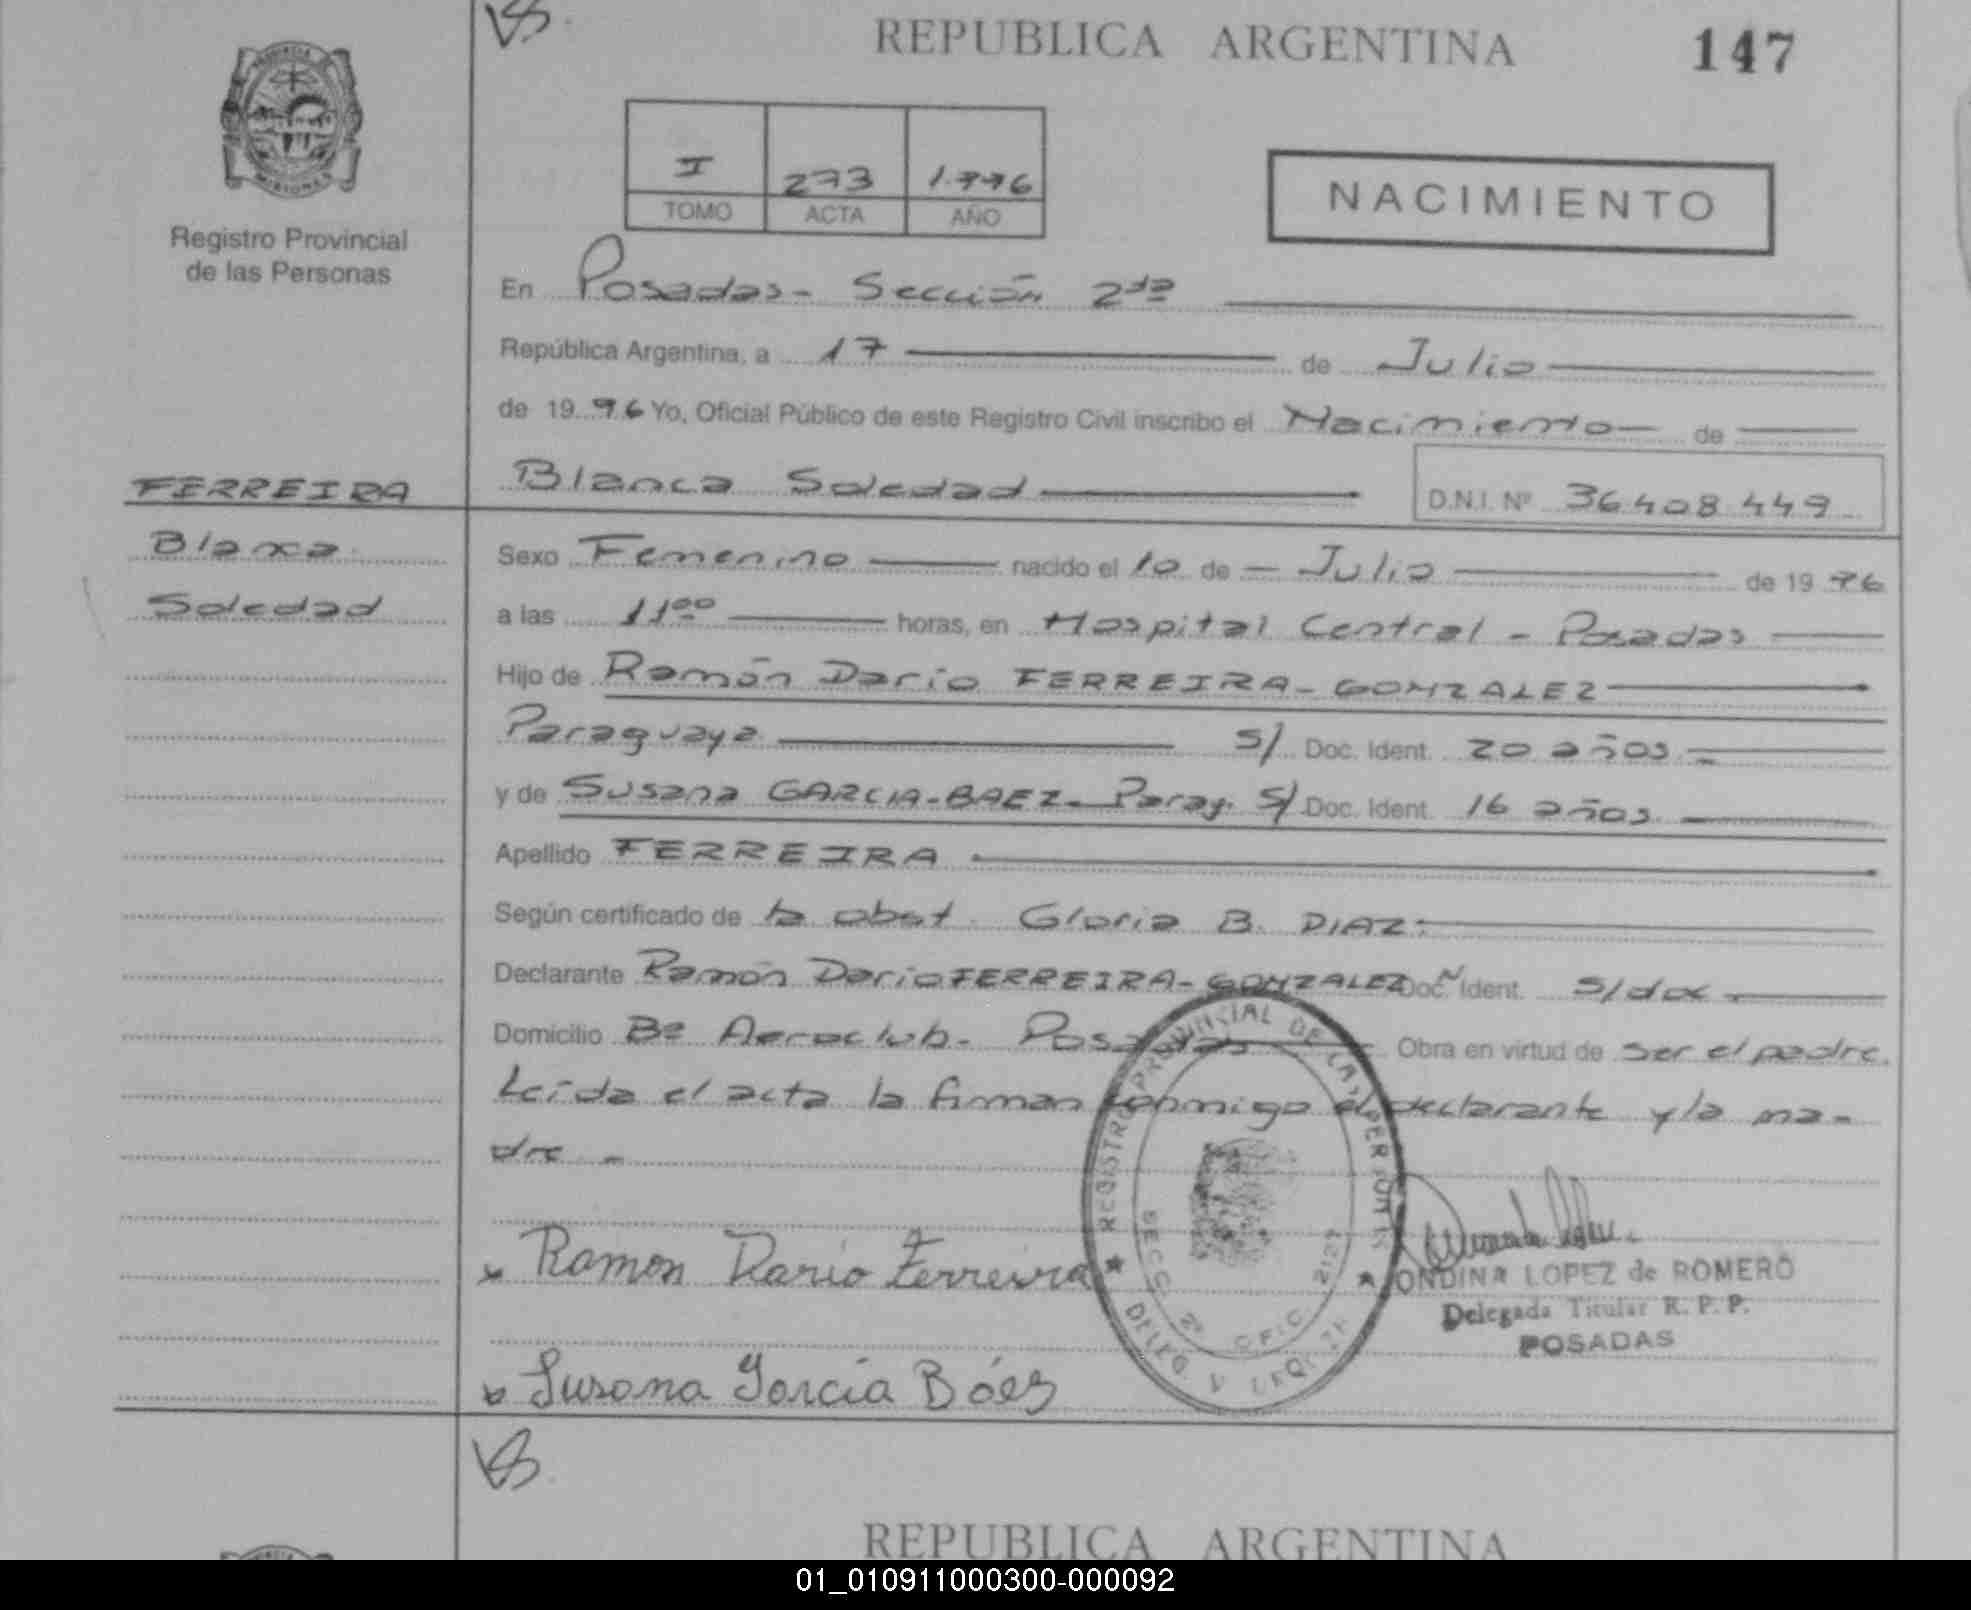 REPUBLICA ARGENTINA 147
PROVINCIA
MISIONES
Registro Provincial
de las Personas
I 273 1.996
TOMO ACTA AÑO
NACIMIENTO
En Posadas - Sección 2da
República Argentina, a 17 de Julio
de 19 96 Yo, Oficial Público de este Registro Civil inscribo el Nacimiento de
FERREIRA Blanca Soledad D.N.I. Nº 36.408.449
Blanca
Soledad
Sexo Femenino nacido el 10 de Julio de 19 96
a las 11ºº horas, en Hospital Central - Posadas
Hijo de Ramón Darío FERREIRA - GONZALEZ
Paraguaya S/ Doc. Ident. 20 años
y de Susana GARCIA - BAEZ - Parag. S/ Doc. Ident. 16 años
Apellido FERREIRA
Según certificado de la obst. Gloria B. DIAZ.
Declarante Ramón Darío FERREIRA - GONZALEZ Doc. Ident. S/doc
Domicilio Bº Aeroclub - Posadas Obra en virtud de ser el padre.
Leída el acta la firman conmigo el declarante y la ma-
dre -
REGISTRO PROVINCIAL DE LAS PERSONAS
SECC. 2ª OFIC.
Ramon Dario Ferreira
ONDINA LOPEZ de ROMERO
Delegada Titular R. P. P.
POSADAS
Susana Garcia Báez
REPUBLICA ARGENTINA
01_010911000300-000092